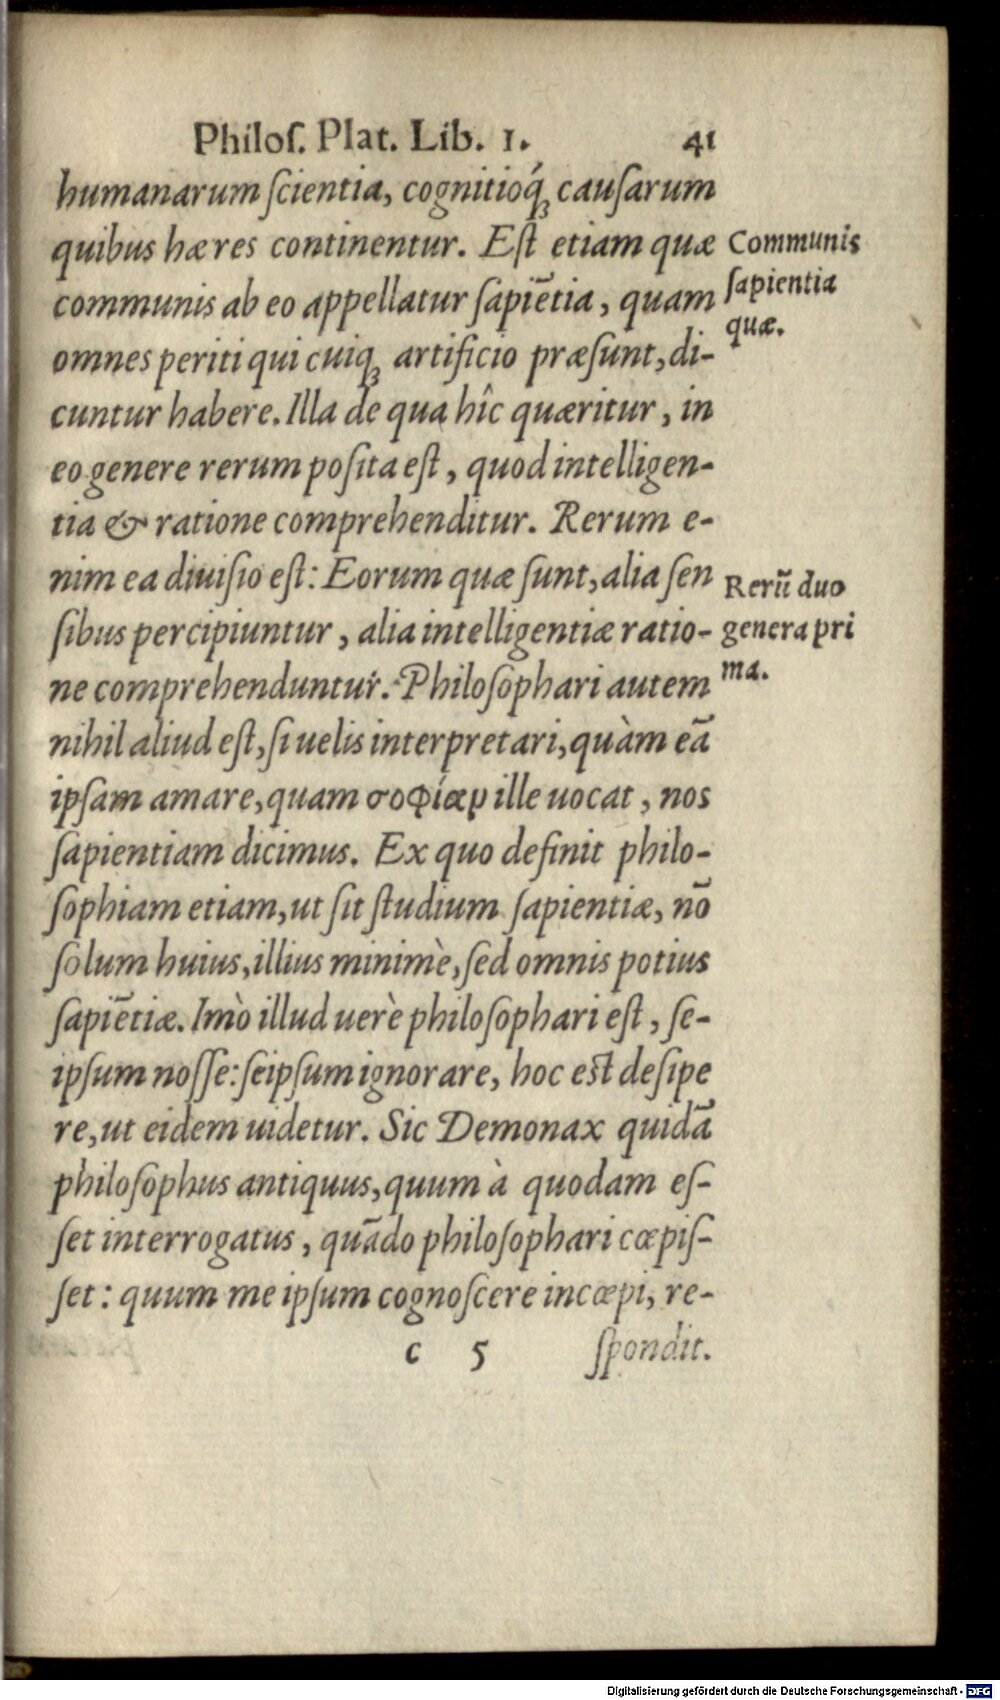 Philoſ. Plat. Lib. 1. 41
humanarum ſcientia, cognitioq́ꝫ cauſarum
quibus hæ res continentur. Eſt etiam quæ
communis ab eo appellatur ſapiẽtia, quam
omnes periti qui cuiqꝫ artificio præſunt, di-
cuntur habere. Illa de qua hîc quæritur, in
eo genere rerum poſita eſt, quod intelligen-
tia & ratione comprehenditur. Rerum e-
nim ea diuiſio eſt: Eorum quæ ſunt, alia ſen
ſibus percipiuntur, alia intelligentiæ ratio-
ne comprehenduntur. Philoſophari autem
nihil aliud eſt, ſi uelis interpretari, quàm eã
ipſam amare, quam σοφίαν ille uocat, nos
ſapientiam dicimus. Ex quo definit philo-
ſophiam etiam, ut ſit ſtudium ſapientiæ, nõ
ſolum huius, illius minimè, ſed omnis potius
ſapiẽtiæ. Imò illud uerè philoſophari eſt, ſe-
ipſum noſſe: ſeipſum ignorare, hoc eſt deſipe
re, ut eidem uidetur. Sic Demonax quidã
philoſophus antiquus, quum à quodam eſ-
ſet interrogatus, quãdo philoſophari cœpiſ-
ſet: quum me ipſum cognoſcere incœpi, re-
c 5 ſpondit.
Communis
ſapientia
quæ.
Rerũ duo
genera pri
ma.
Digitalisierung gefördert durch die Deutsche Forschungsgemeinschaft - DFG